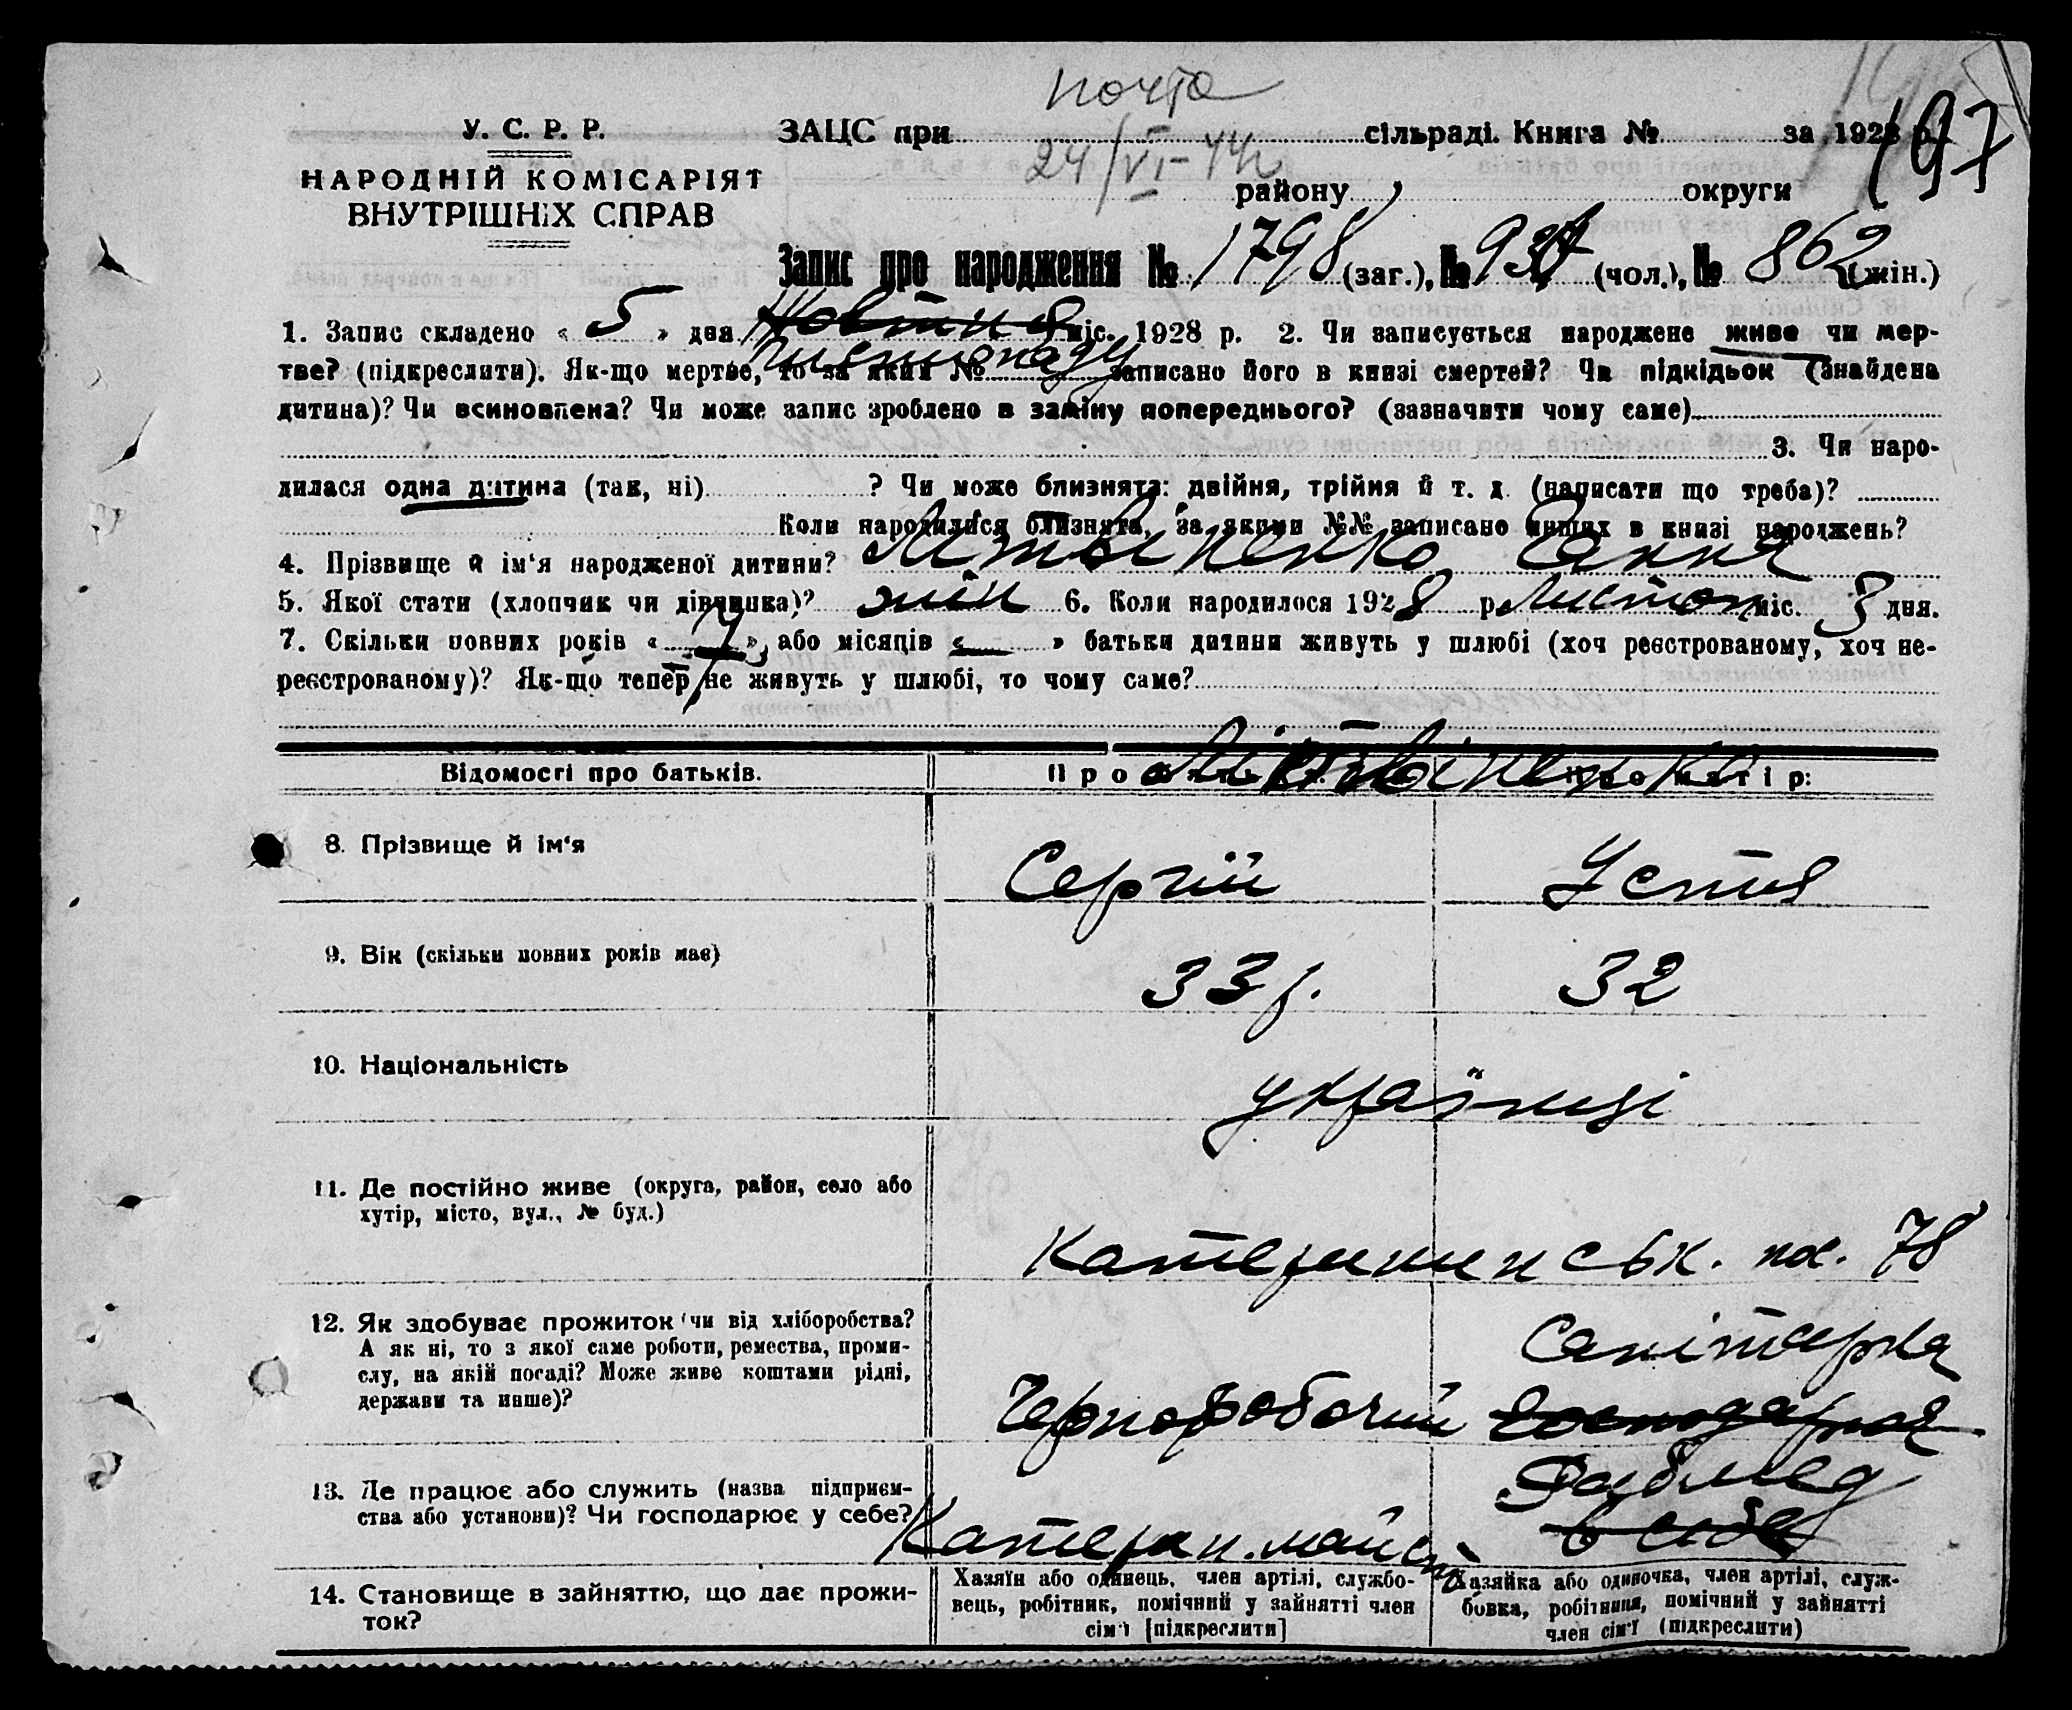 почта
197
У. С. Р. Р.
ЗАЦС при сільраді. Книга № за 1928 р.
24/VI-44
НАРОДНІЙ КОМІСАРІЯТ
ВНУТРІШНІХ СПРАВ
району округи
Запис про народження № 1798 (заг.), № (чол.), № 862 (жін.)
1. Запис складено « 5 » дня Жовтня міс. 1928 р. 2. Чи записується народжене живе чи мер-
Листопаду
тве? (підкреслити). Як-що мертве, то за яким № записано його в книзі смертей? Чи підкідьок (знайдена
дитина)? Чи всиновлена? Чи може запис зроблено в заміну попереднього? (зазначити чому саме)
3. Чи наро-
дилася одна дитина (так, ні) ? Чи може близнята: двійня, трійня й т. д. (написати що треба)?
Коли народилися близнята, за якими №№ записано инших в книзі народжень?
4. Прізвище й ім'я народженої дитини? Літвіненко Ганна
5. Якої стати (хлопчик чи дівчинка)? жін 6. Коли народилося 1928 р. Листоп міс. 3 дня.
7. Скільки повних років « » або місяців « » батьки дитини живуть у шлюбі (хоч реєстрованому, хоч не-
реєстрованому)? Як-що тепер не живуть у шлюбі, то чому саме?
Відомості про батьків. Про Про матір:
Літвіненко
8. Прізвище й ім'я
Сергій Устя
9. Вік (скільки повних років має)
33 р. 32
10. Національність
українці
11. Де постійно живе (округа, район, село або
хутір, місто, вул., № буд.)
Катерининськ. 78
12. Як здобуває прожиток (чи від хліборобства?
А як ні, то з якої саме роботи, ремества, проми-
слу, на якій посаді? Може живе коштами рідні,
держави та инше)?
Санітарка
Чернорабочий Господарка
13. Де працює або служить (назва підприєм-
ства або установи)? Чи господарює у себе?
Рабмед
в себе
Катерин. майст
14. Становище в зайняттю, що дає прожи-
ток?
Хазяїн або одинець, член артілі, службо-
вець, робітник, помічний у зайнятті член
сім'ї [підкреслити]
Хазяйка або одиночка, член артілі, служ-
бовка, робітниця, помічний у зайнятті
член сім'ї (підкреслити)